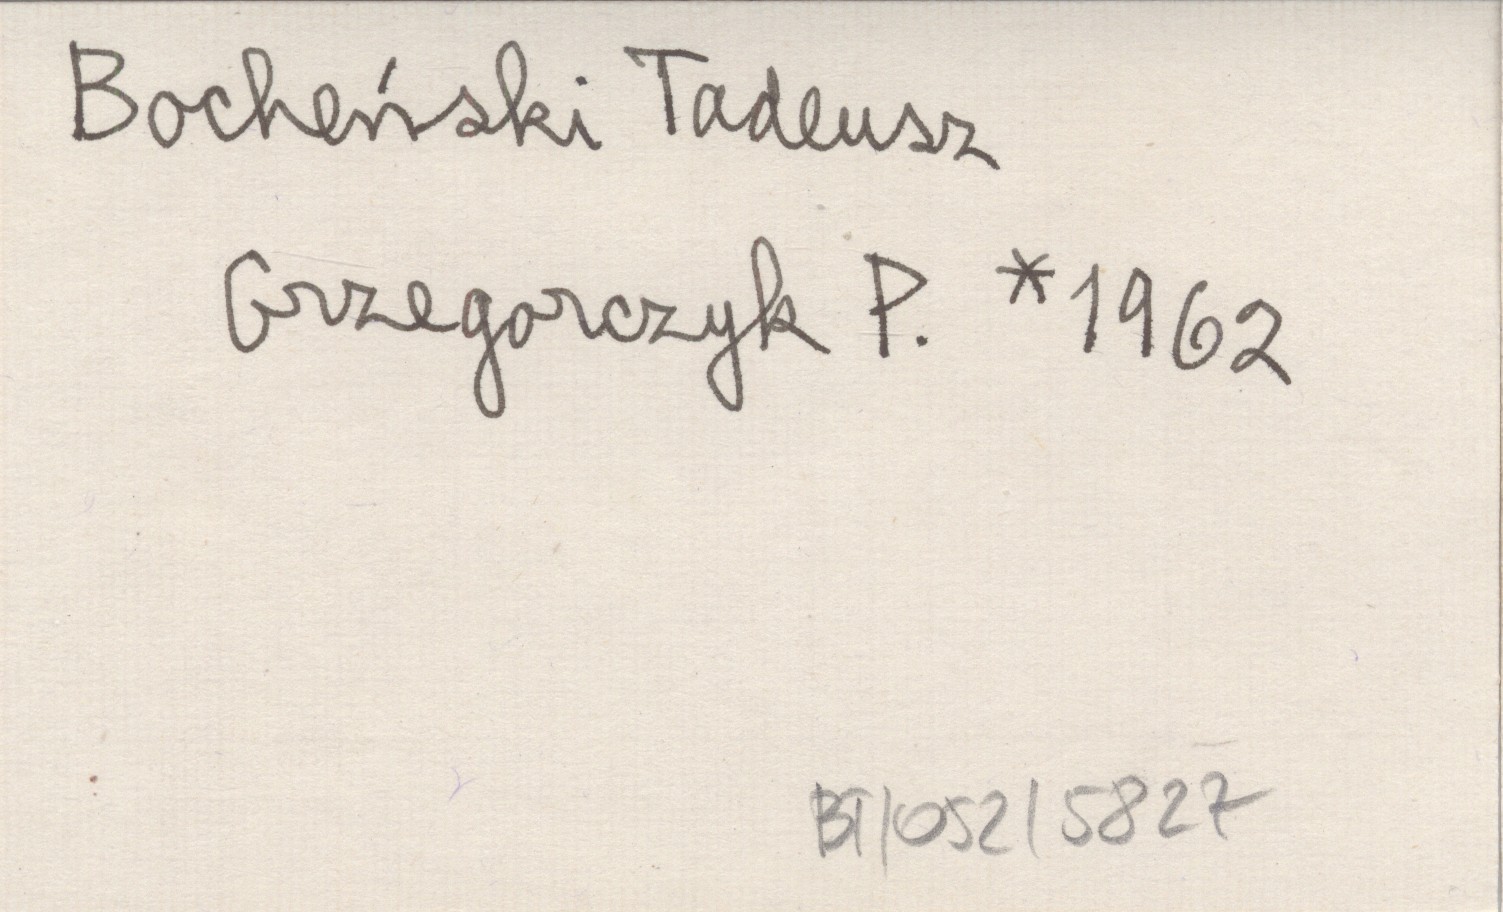 Bocheński Tadeusz
Grzegorczyk P. *1962
BT/052/5827